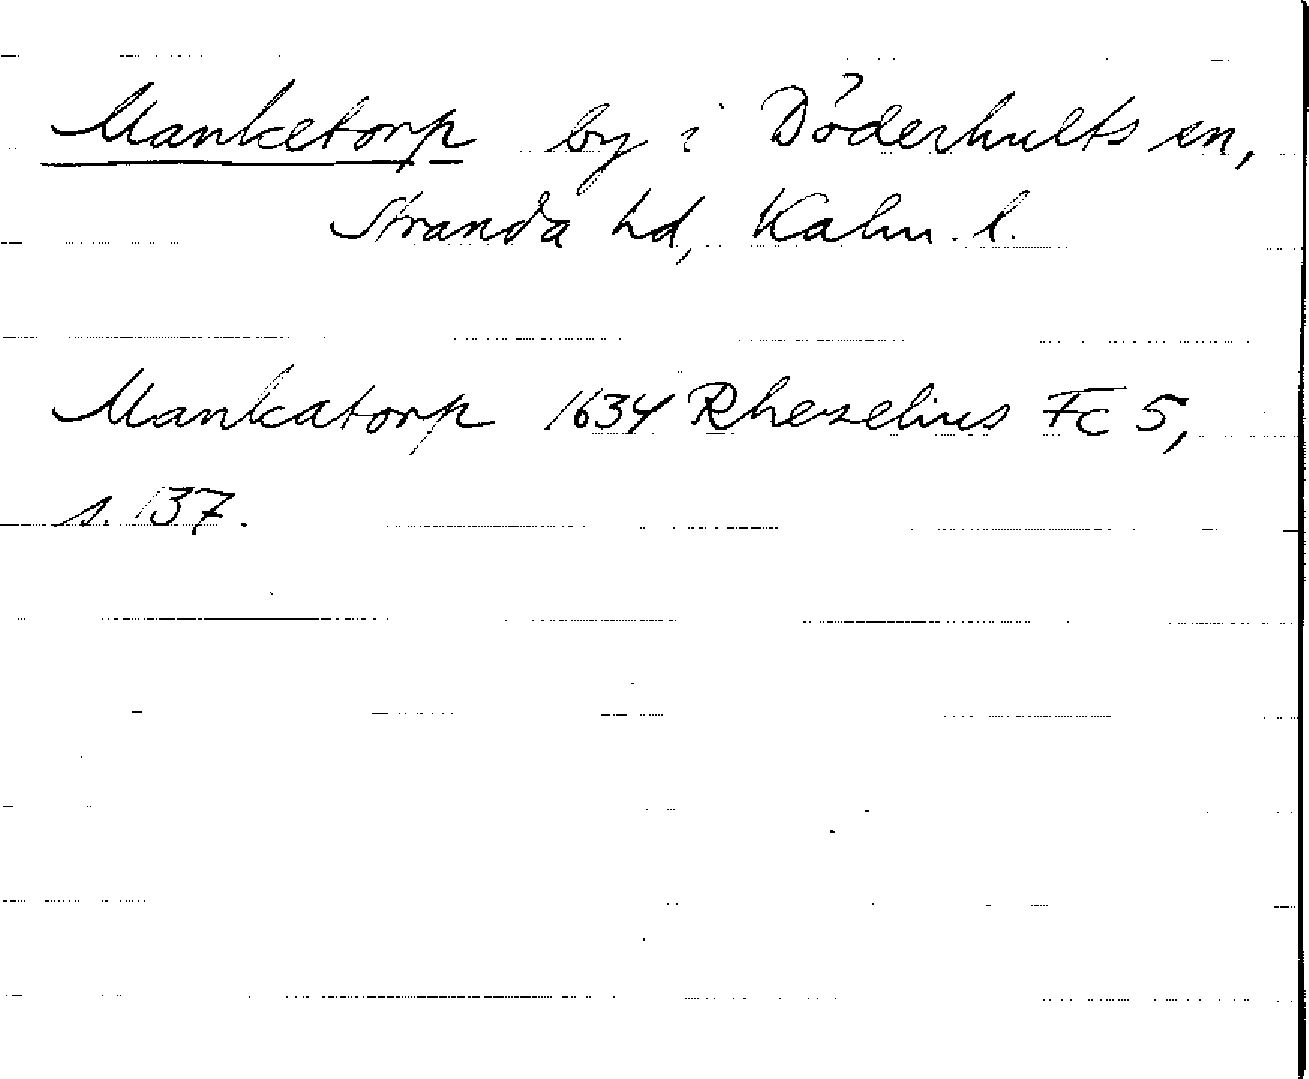 Manketorp by i Döderhults sn,
Stranda hd, Kalm. l.
Mankatorp 1634 Rhezelius Fc 5,
s. 137.